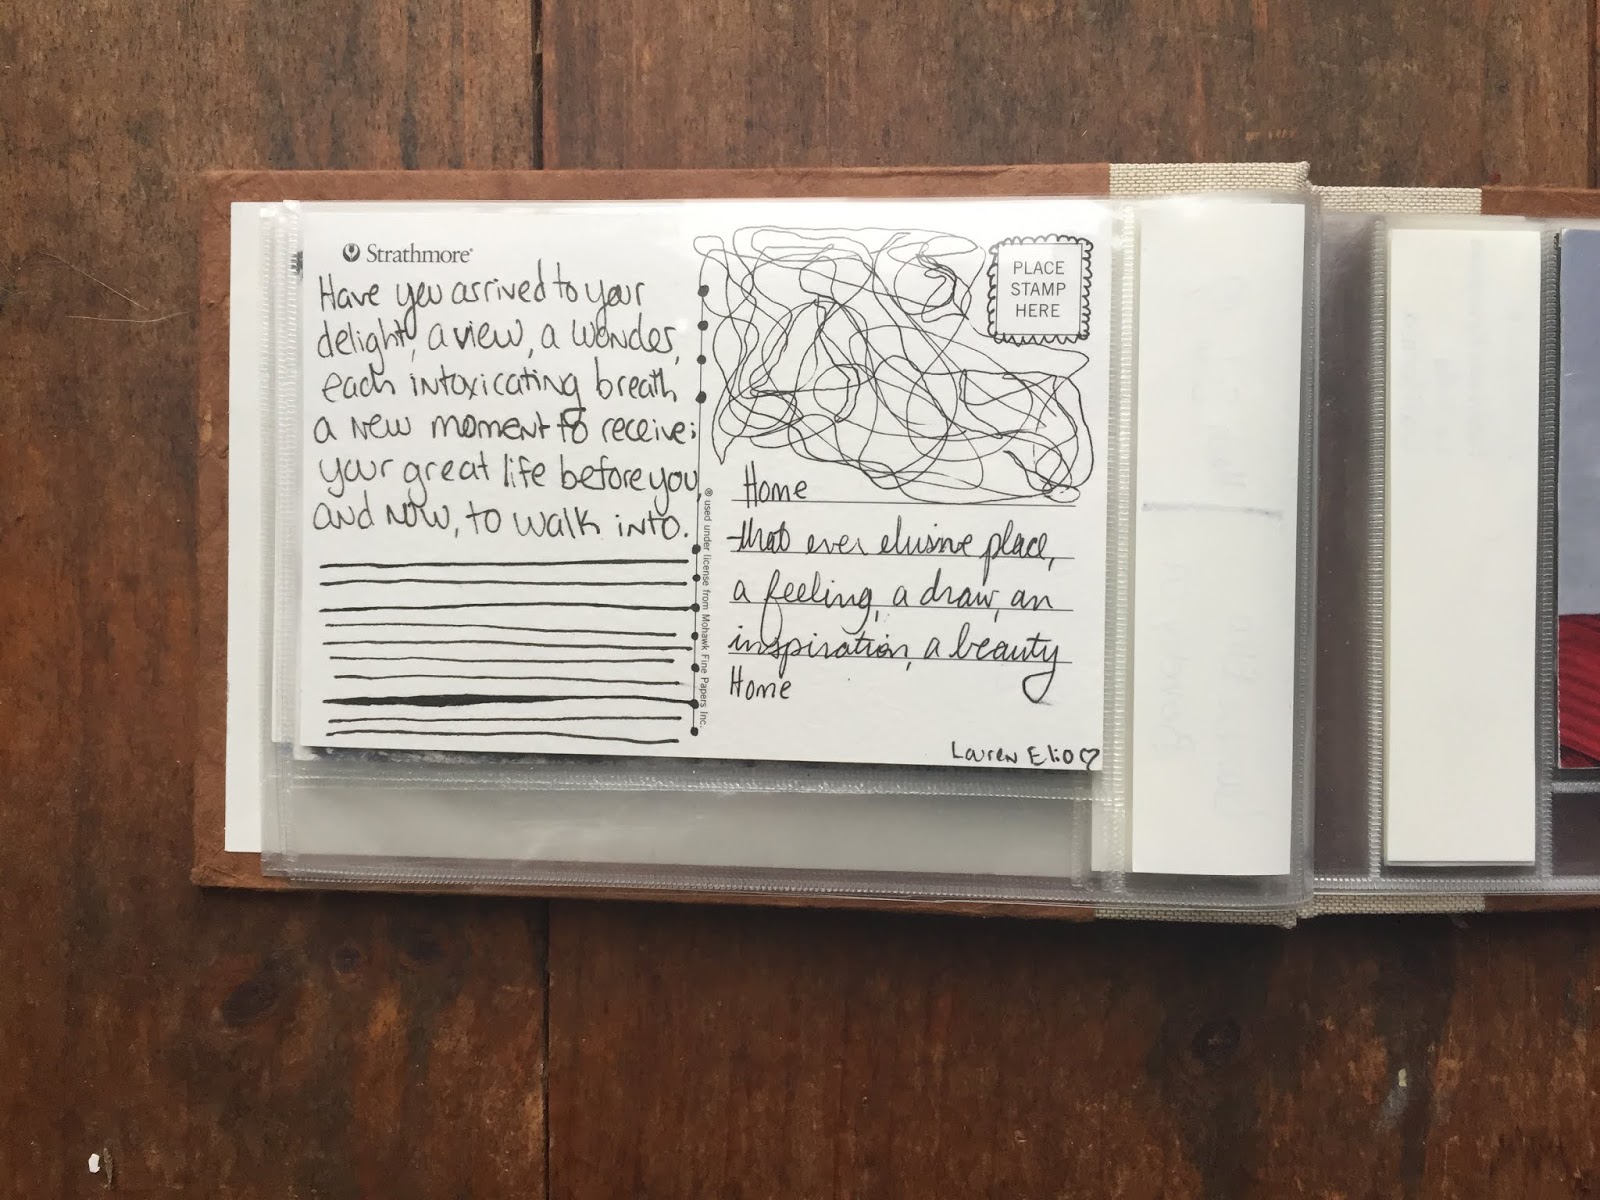 Strathmore®
Have you arrived to your
delight, a view, a wonder,
each intoxicating breath
a new moment to receive;
your great life before you
and now, to walk into.
PLACE
STAMP
HERE
® used under license from Mohawk Fine Papers Inc.
Home
that ever elusive place,
a feeling, a draw, an
inspiration, a beauty
Home
Lauren Elio♡